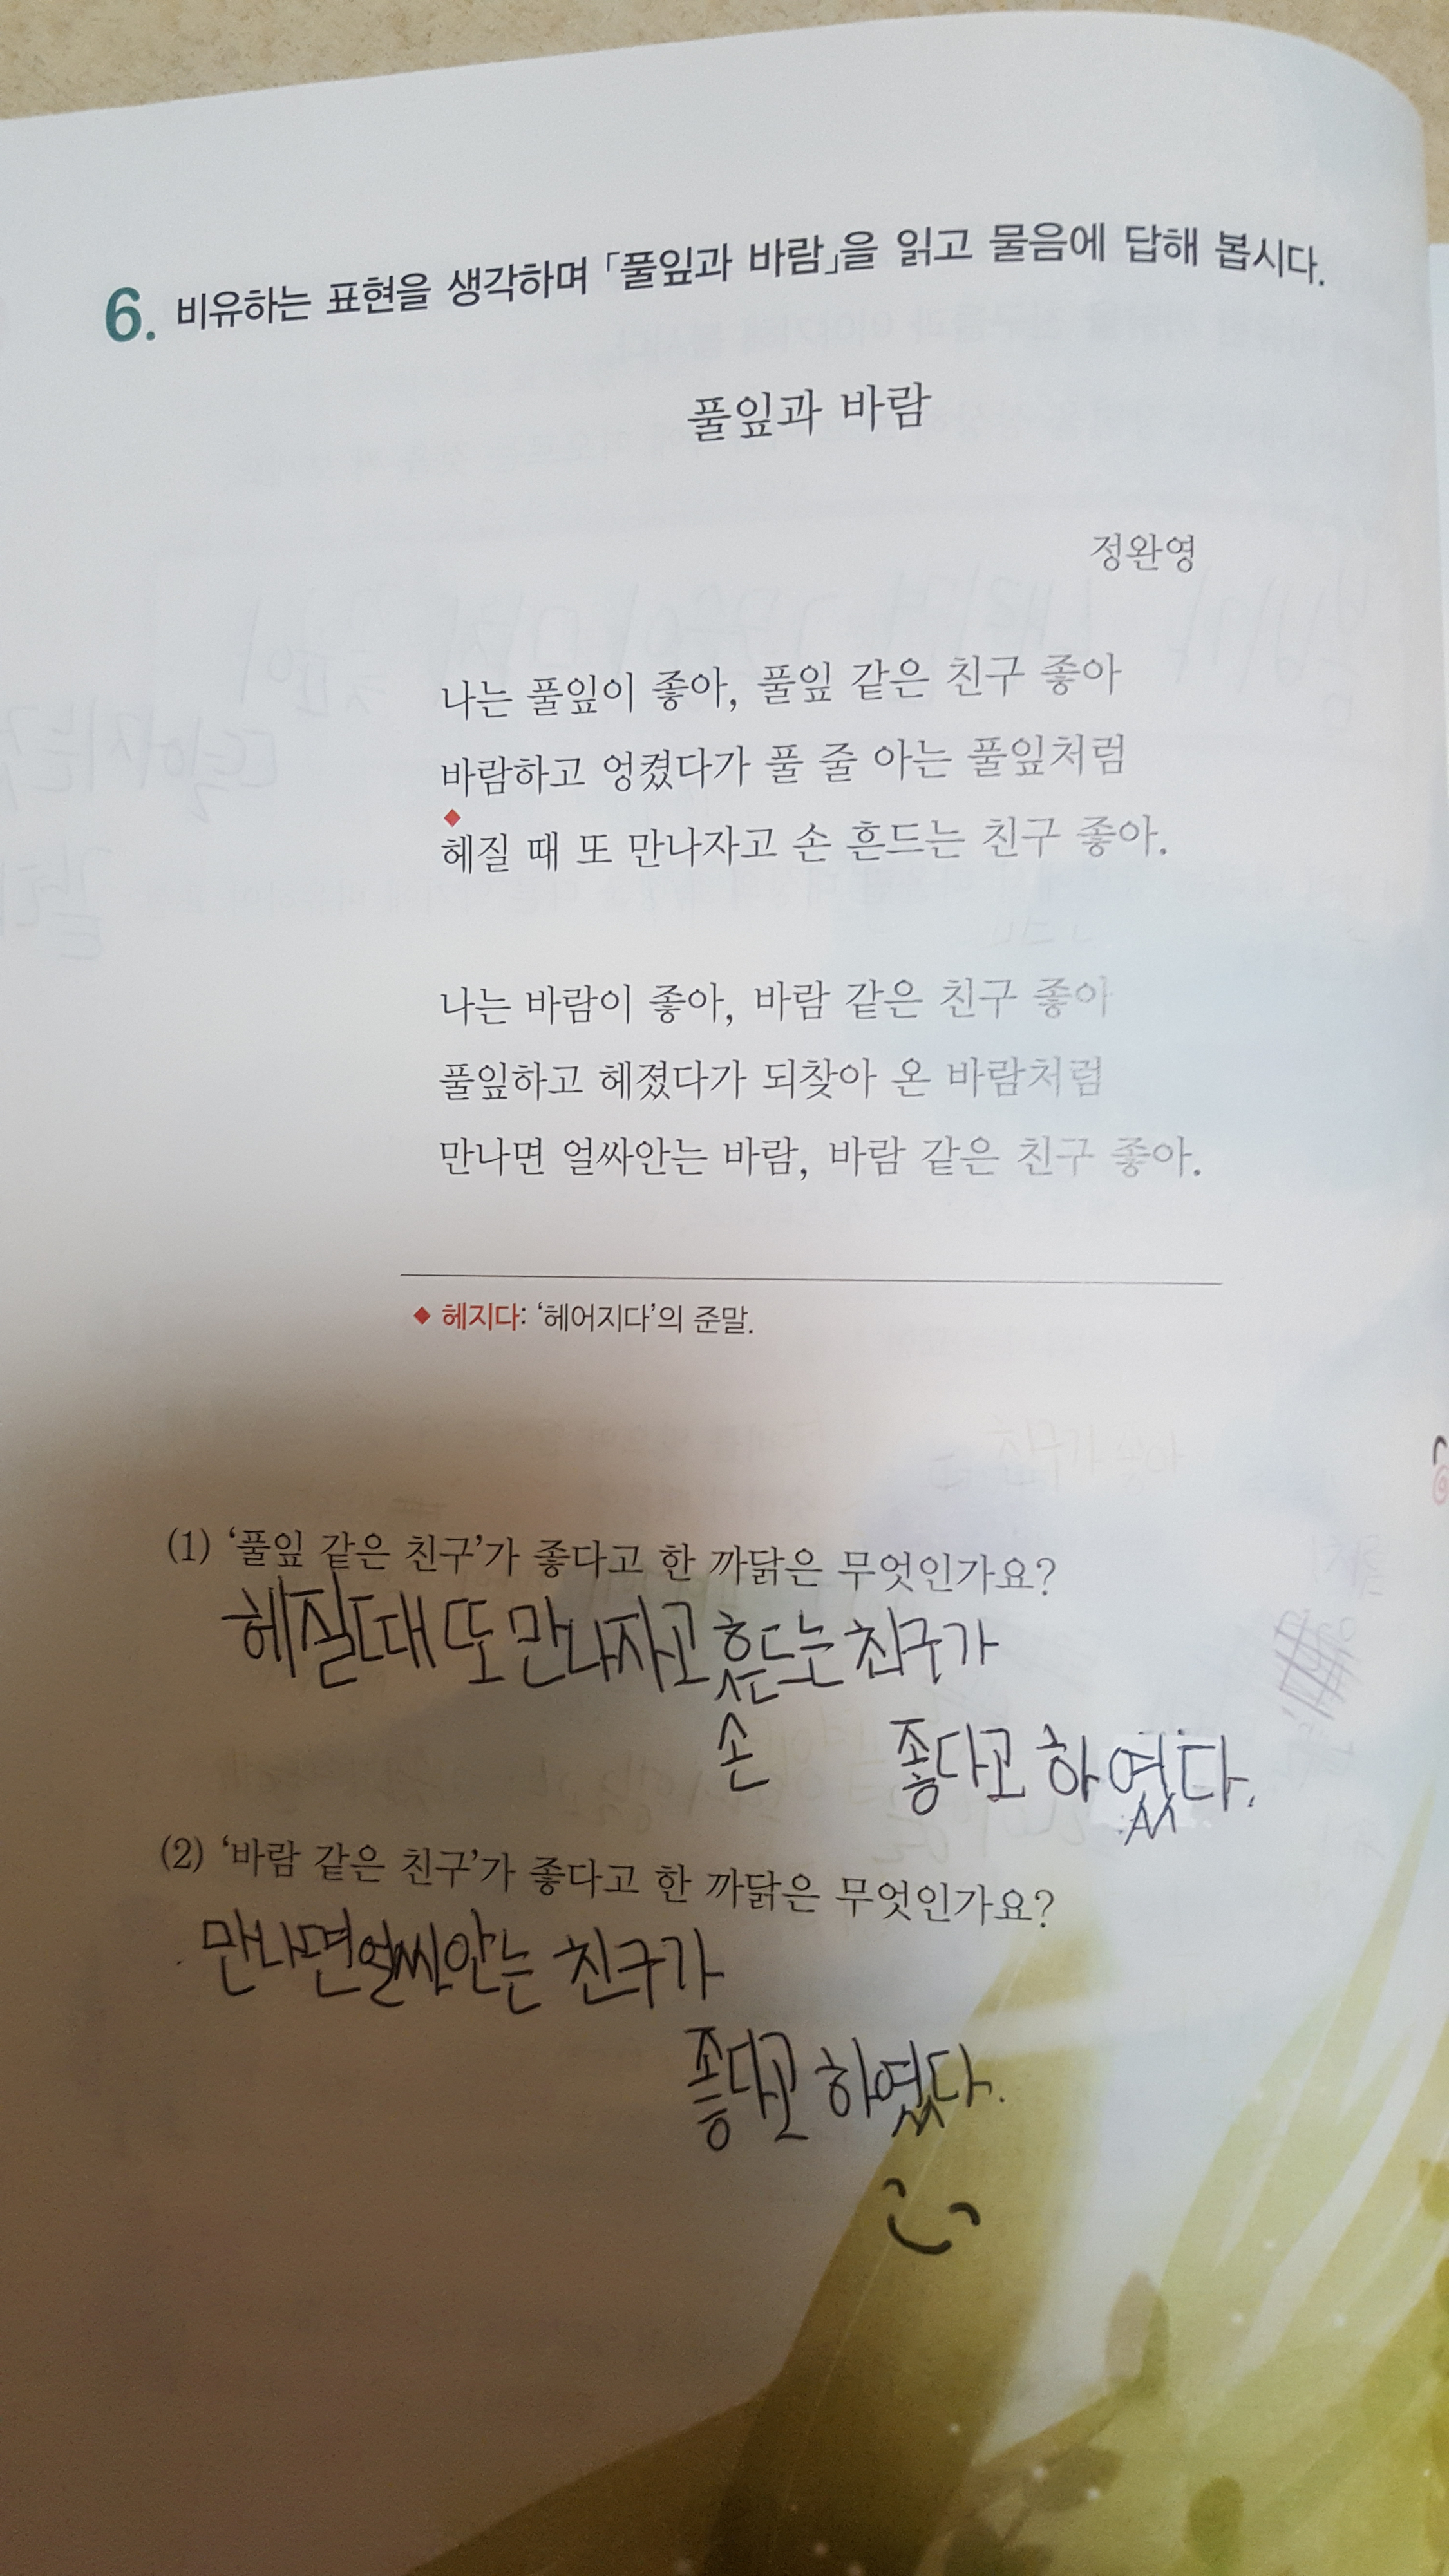 6. 비유하는 표현을 생각하며 「풀잎과 바람」을 읽고 물음에 답해 봅시다.
풀잎과 바람
정완영
나는 풀잎이 좋아, 풀잎 같은 친구 좋아
바람하고 엉켰다가 풀 줄 아는 풀잎처럼
◆
헤질 때 또 만나자고 손 흔드는 친구 좋아.
나는 바람이 좋아, 바람 같은 친구 좋아
풀잎하고 헤졌다가 되찾아 온 바람처럼
만나면 얼싸안는 바람, 바람 같은 친구 좋아.
◆ 헤지다: ‘헤어지다’의 준말.
(1) ‘풀잎 같은 친구’가 좋다고 한 까닭은 무엇인가요?
헤질때 또 만나자고 흔드는 친구가
손 좋다고 하였다.
(2) ‘바람 같은 친구’가 좋다고 한 까닭은 무엇인가요?
만나면 얼싸안는 친구가
좋다고 하였다.